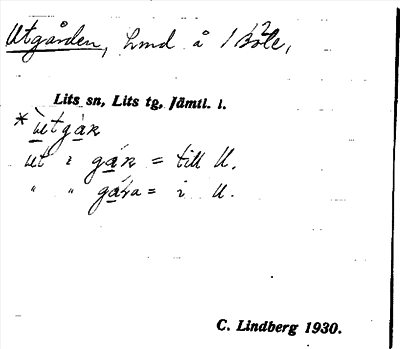 Utgården, hmd å 1/2 Böle,
Lits sn, Lits tg, Jämtl. l.
*ùtgàn
ut i gán = till U.
" " gáṇa = i U.
C. Lindberg 1930.